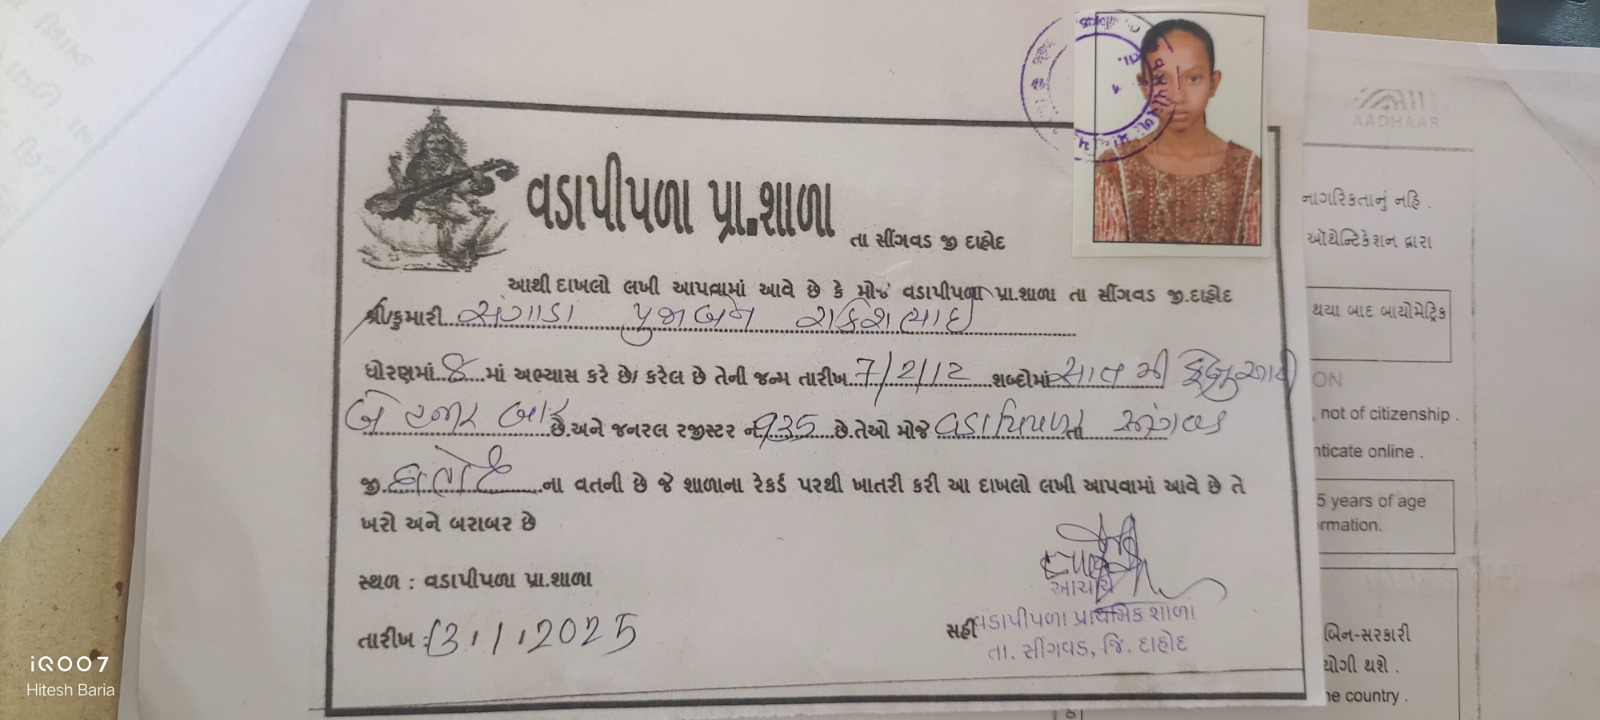 વડાપીપળા પ્રા.શાળા
તા સીંગવડ જી દાહોદ
આથી દાખલો લખી આપવામાં આવે છે કે મોજે વડાપીપળા પ્રા.શાળા તા સીંગવડ જી.દાહોદ
શ્રી/કુમારી સંગાડા પુજાબેન રાકેશભાઇ
ધોરણમાં 8 માં અભ્યાસ કરે છે/ કરેલ છે તેની જન્મ તારીખ 7/2/12 શબ્દોમાં સાતમી ફેબ્રુઆરી
બે હજાર બાર છે.અને જનરલ રજીસ્ટર નં 935 છે.તેઓ મોજે વડાપિપળા તા સીંગવડ
જી. દાહોદ ના વતની છે જે શાળાના રેકર્ડ પરથી ખાતરી કરી આ દાખલો લખી આપવામાં આવે છે તે
ખરો અને બરાબર છે
સ્થળ : વડાપીપળા પ્રા.શાળા
તારીખ : 13/1/2025
સહી
આચાર્ય
વડાપીપળા પ્રાથમિક શાળા
તા. સીંગવડ, જિ. દાહોદ
AADHAAR
નાગરિકતાનું નહિ .
ઑથેન્ટિકેશન દ્વારા
થયા બાદ બાયોમેટ્રિક
ON
, not of citizenship .
nticate online .
5 years of age
rmation.
બિન-સરકારી
યોગી થશે .
he country .
iQOO7
Hitesh Baria